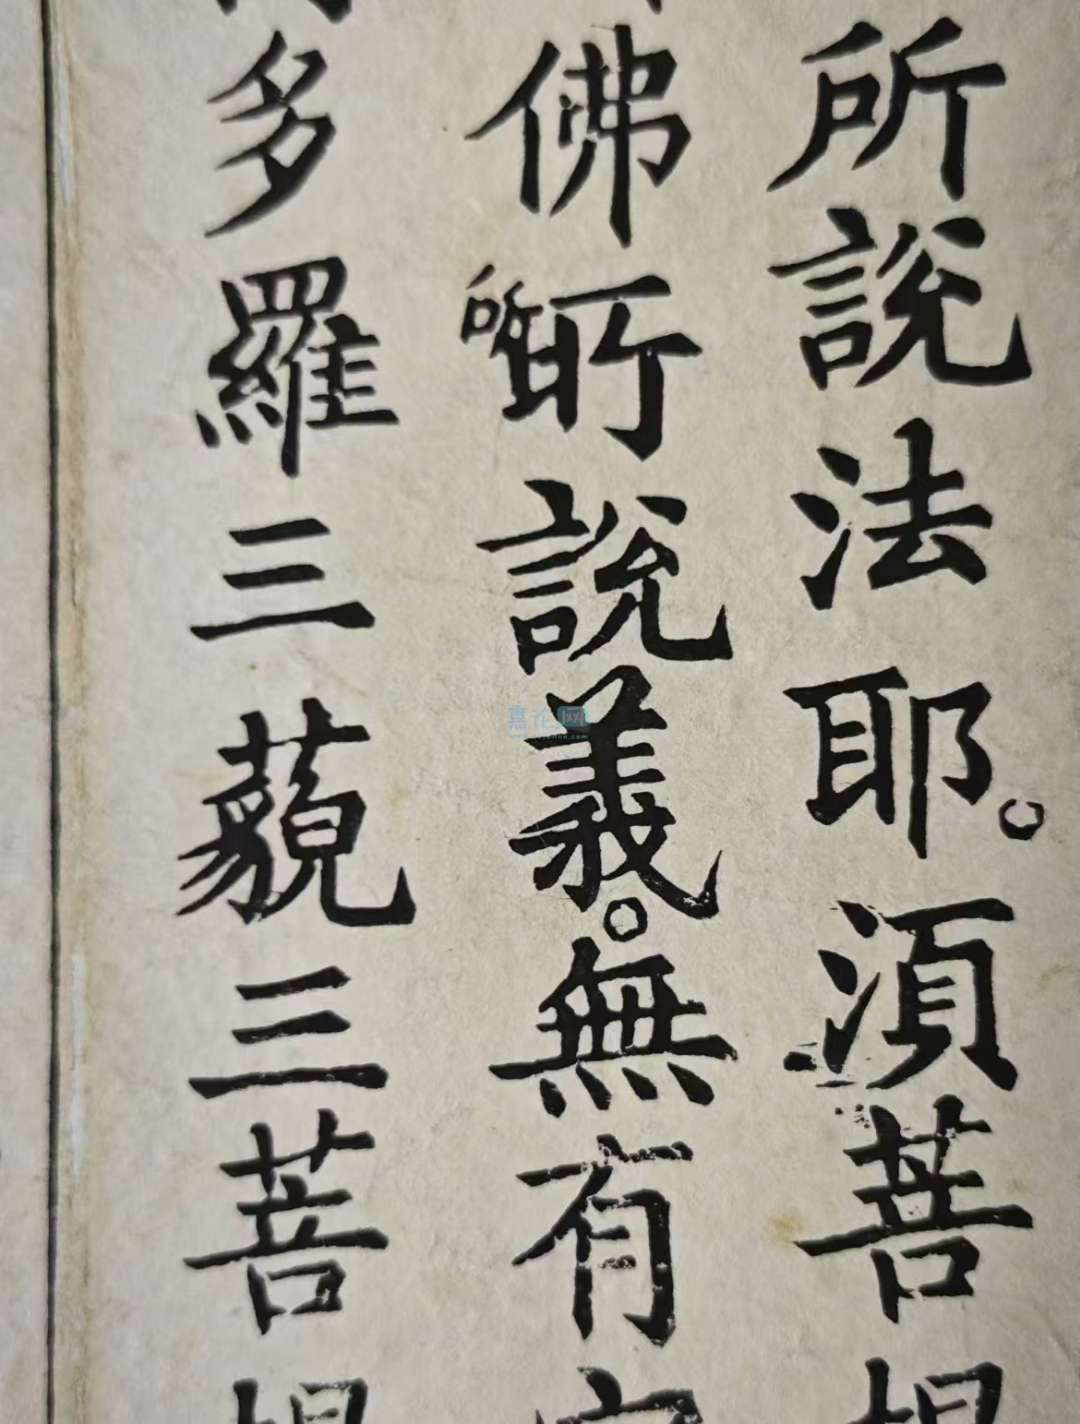 所說法耶。須菩提
佛所說義。無有定
多羅三藐三菩提